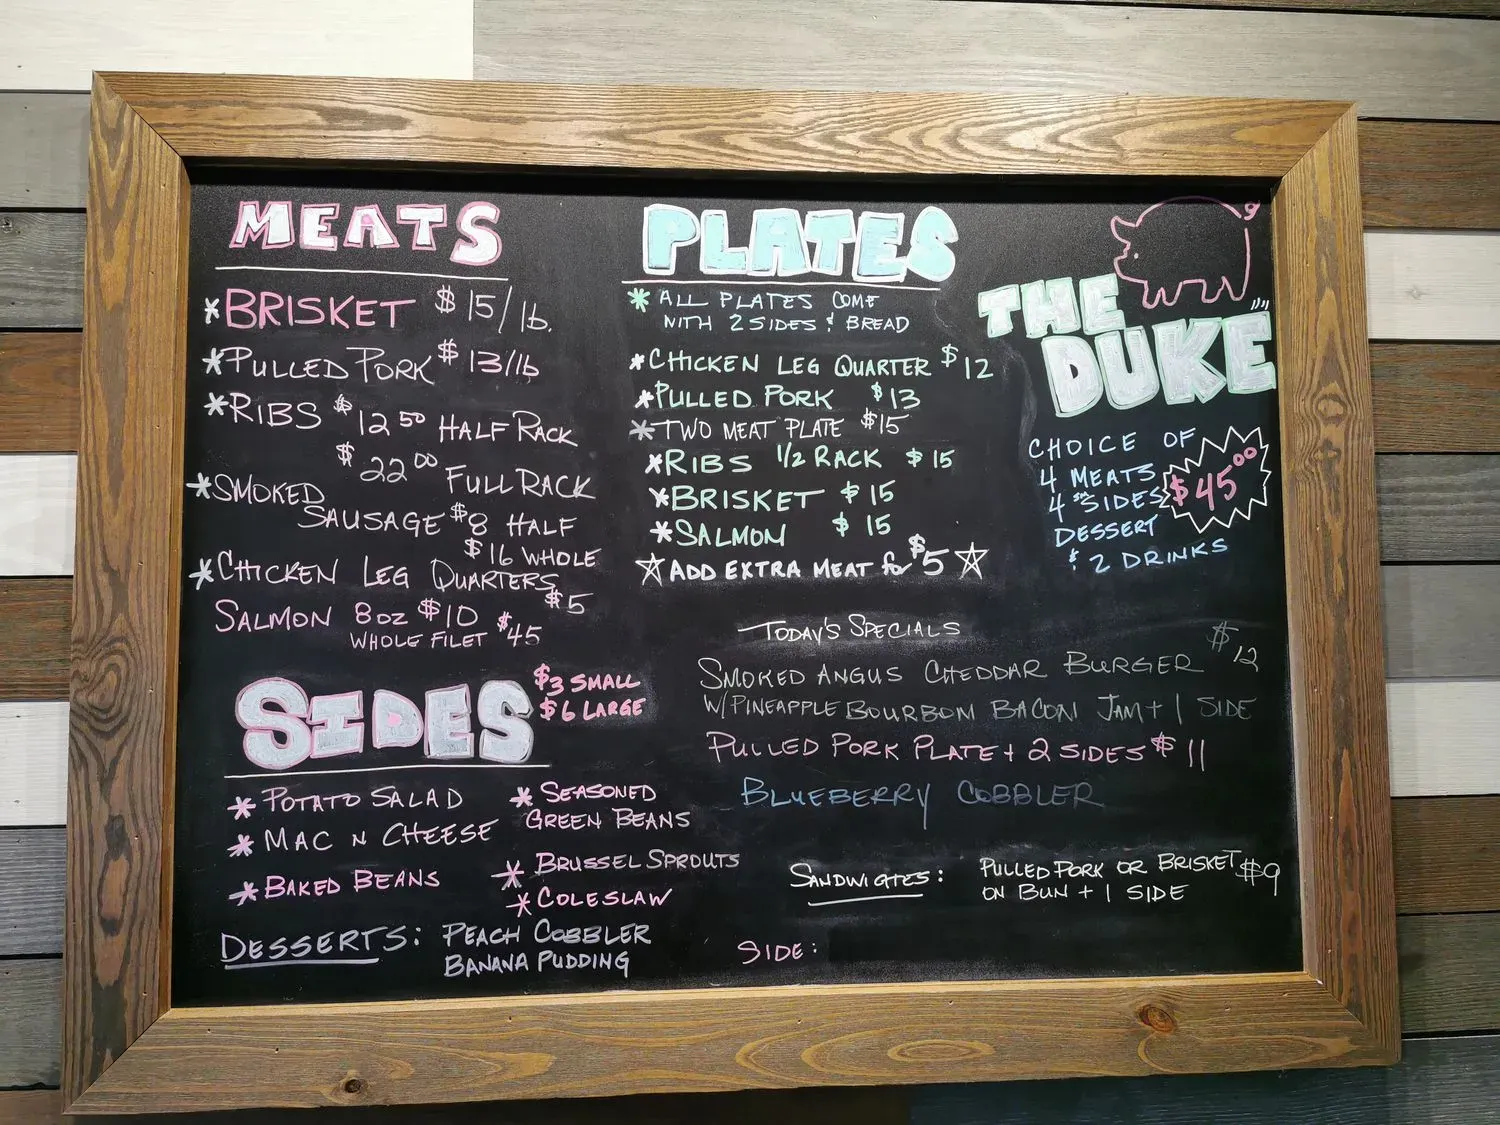 MEATS
*BRISKET $15/lb.
*PULLED PORK $13/lb
*RIBS $12 50 HALF RACK
$22 00 FULL RACK
*SMOKED
SAUSAGE $8 HALF
$16 WHOLE
*CHICKEN LEG QUARTERS
$5
SALMON 8oz $10 $45
WHOLE FILET
SIDES
$3 SMALL
$6 LARGE
* POTATO SALAD
* MAC N CHEESE
* BAKED BEANS
* SEASONED
GREEN BEANS
* BRUSSEL SPROUTS
* COLESLAW
DESSERTS: PEACH COBBLER
BANANA PUDDING
PLATES
* ALL PLATES COME
WITH 2 SIDES & BREAD
*CHICKEN LEG QUARTER $12
*PULLED PORK $13
*TWO MEAT PLATE $15
*RIBS 1/2 RACK $15
*BRISKET $15
*SALMON $15
☆ADD EXTRA MEAT for $5 ☆
THE
DUKE
CHOICE OF
4 MEATS
4 SIDES
DESSERT
& 2 DRINKS
$45 00
TODAY'S SPECIALS
SMOKED ANGUS CHEDDAR BURGER $12
W/PINEAPPLE BOURBON BACON JAM + 1 SIDE
PULLED PORK PLATE + 2 SIDES $11
BLUEBERRY COBBLER
SANDWIGTES: PULLED PORK OR BRISKET $9
ON BUN + 1 SIDE
SIDE: